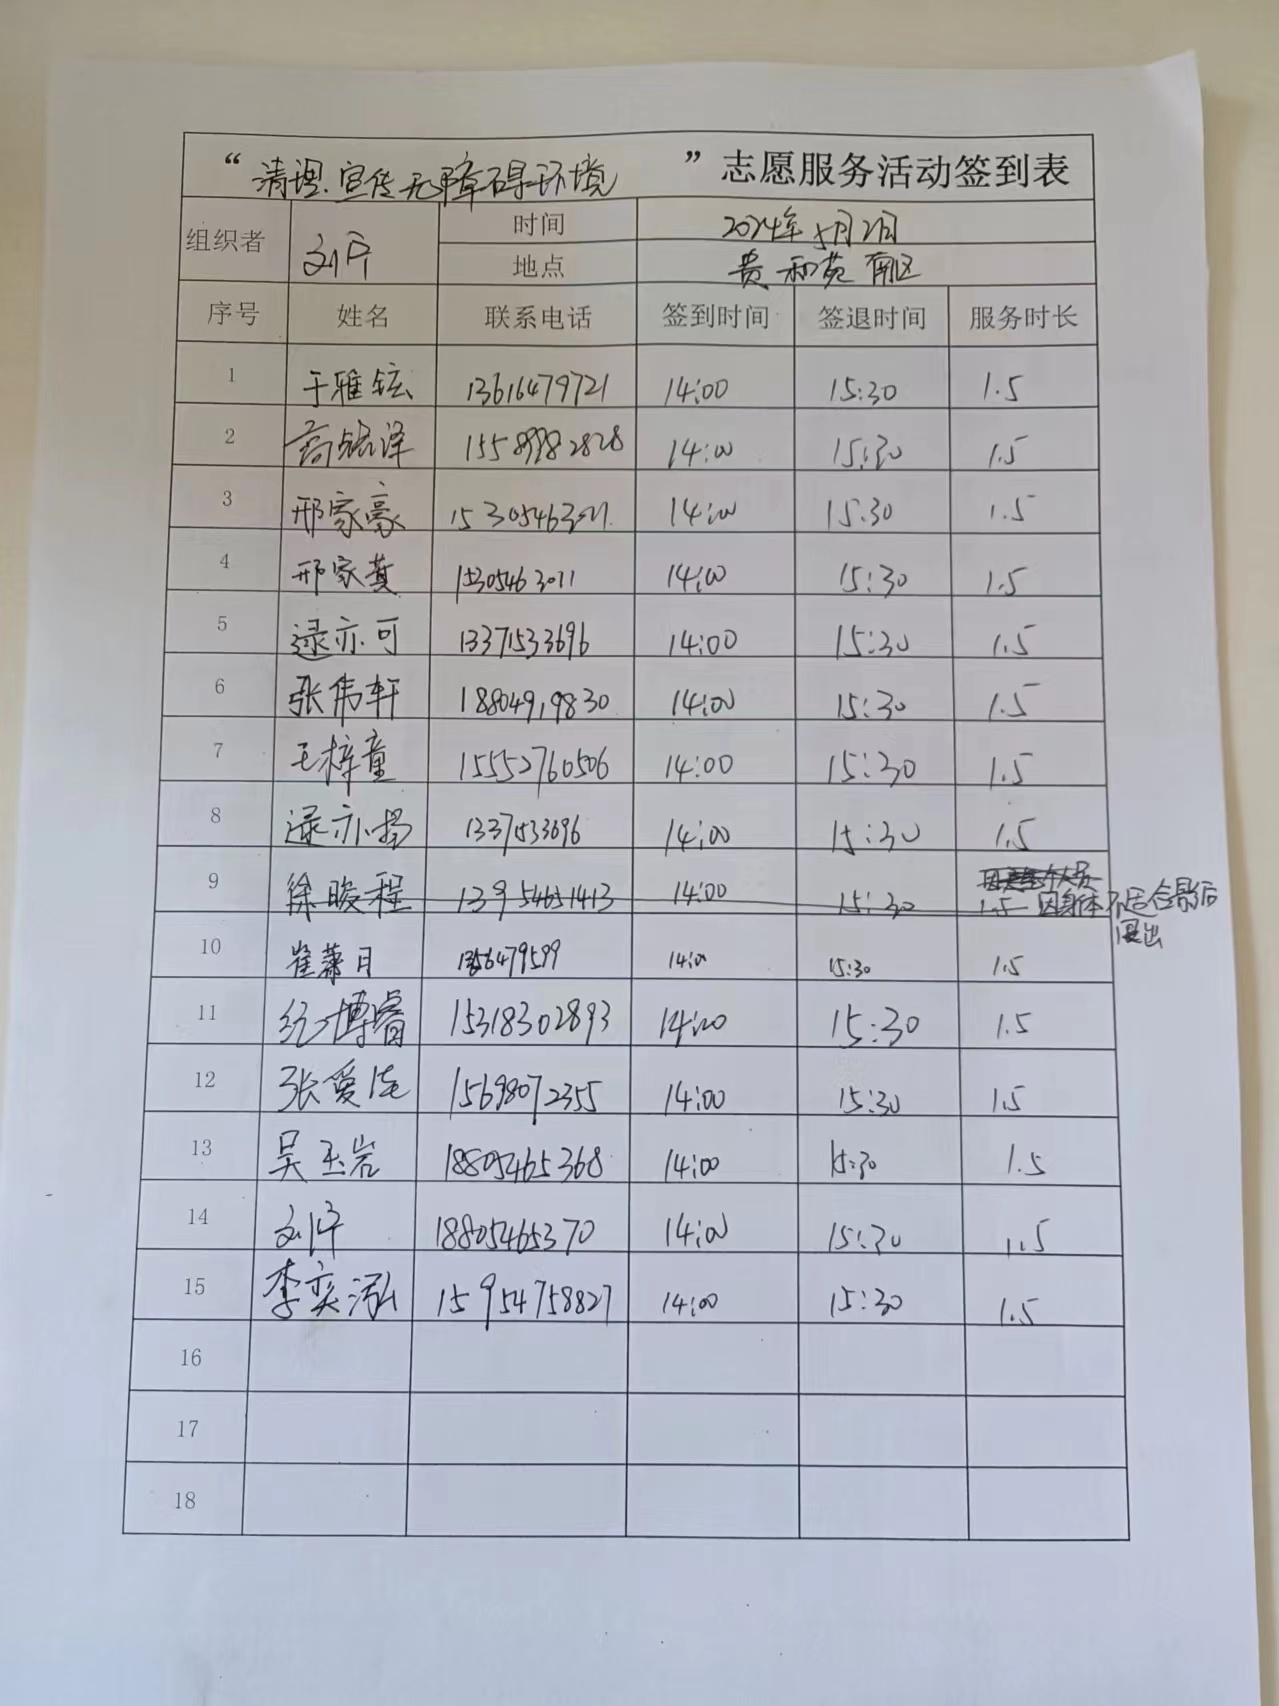 “清理、宣传无障碍环境”志愿服务活动签到表
组织者 时间 2024年5月2日
地点 贵和苑南区
序号 姓名 联系电话 签到时间 签退时间 服务时长
1 于雅铉 13616479721 14:00 15:30 1.5
2 高铭泽 15589982828 14:00 15:30 1.5
3 邢家豪 14:00 15:30 1.5
4 邢家 15305463011 14:00 15:30 1.5
5 逯亦可 13371533696 14:00 15:30 1.5
6 张伟轩 18804919830 14:00 15:30 1.5
7 王梓童 15552760506 14:00 15:30 1.5
8 逯亦扬 1337533696 14:00 15:30 1.5
9 徐晙程 13954651413 14:00 15:30 1.5 因身体不适合影后
退出
10 崔 月 14:00 15:30 1.5
11 纪博睿 15318302893 14:00 15:30 1.5
12 张爱 15698072355 14:00 15:30 1.5
13 吴玉岩 18805465368 14:00 15:30 1.5
14 18805465370 14:00 15:30 1.5
15 李奕泓 15954758827 14:00 15:30 1.5
16
17
18